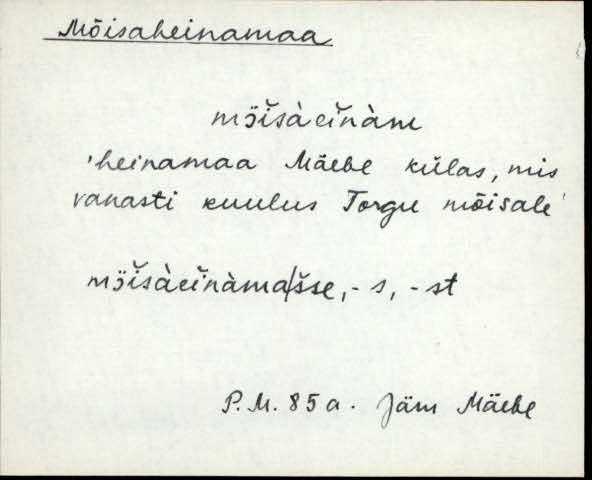 Mõisaheinamaa
mȯ̃išàeĭnàm
'heinamaa Mäebe külas, mis
vanasti kuulus Torgu mõisale'
mȯ̃išàeĭnàma/šse, -s, -st
P. M. 85 a. Jäm Mäebe